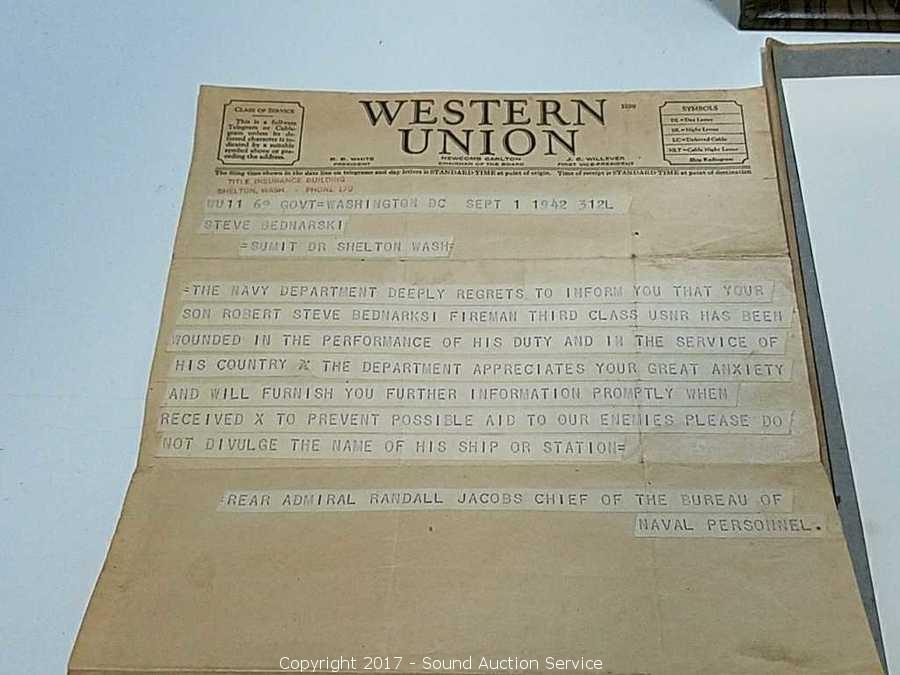 CLASS OF SERVICE
This is a full-rate
Telegram or Cable-
gram unless its de-
ferred character is in-
dicated by a suitable
symbol above or pre-
ceding the address.
WESTERN
UNION
SYMBOLS
DL=Day Letter
NL=Night Letter
LC=Deferred Cable
NLT=Cable Night Letter
Ship Radiogram
R. B. WHITE
PRESIDENT
NEWCOMB CARLTON
CHAIRMAN OF THE BOARD
J. C. WILLEVER
FIRST VICE-PRESIDENT
The filing time shown in the date line on telegrams and day letters is STANDARD TIME at point of origin. Time of receipt is STANDARD TIME at point of destination
TITLE INSURANCE BUILDING
SHELTON, WASH. - PHONE 170
WU11 69 GOVT=WASHINGTON DC SEPT 1 1942 312L
STEVE BEDNARSKI
=SUMIT DR SHELTON WASH=
=THE NAVY DEPARTMENT DEEPLY REGRETS TO INFORM YOU THAT YOUR
SON ROBERT STEVE BEDNARKSI FIREMAN THIRD CLASS USNR HAS BEEN
WOUNDED IN THE PERFORMANCE OF HIS DUTY AND IN THE SERVICE OF
HIS COUNTRY X THE DEPARTMENT APPRECIATES YOUR GREAT ANXIETY
AND WILL FURNISH YOU FURTHER INFORMATION PROMPTLY WHEN
RECEIVED X TO PREVENT POSSIBLE AID TO OUR ENEMIES PLEASE DO
NOT DIVULGE THE NAME OF HIS SHIP OR STATION=
=REAR ADMIRAL RANDALL JACOBS CHIEF OF THE BUREAU OF
NAVAL PERSONNEL.
Copyright 2017 - Sound Auction Service